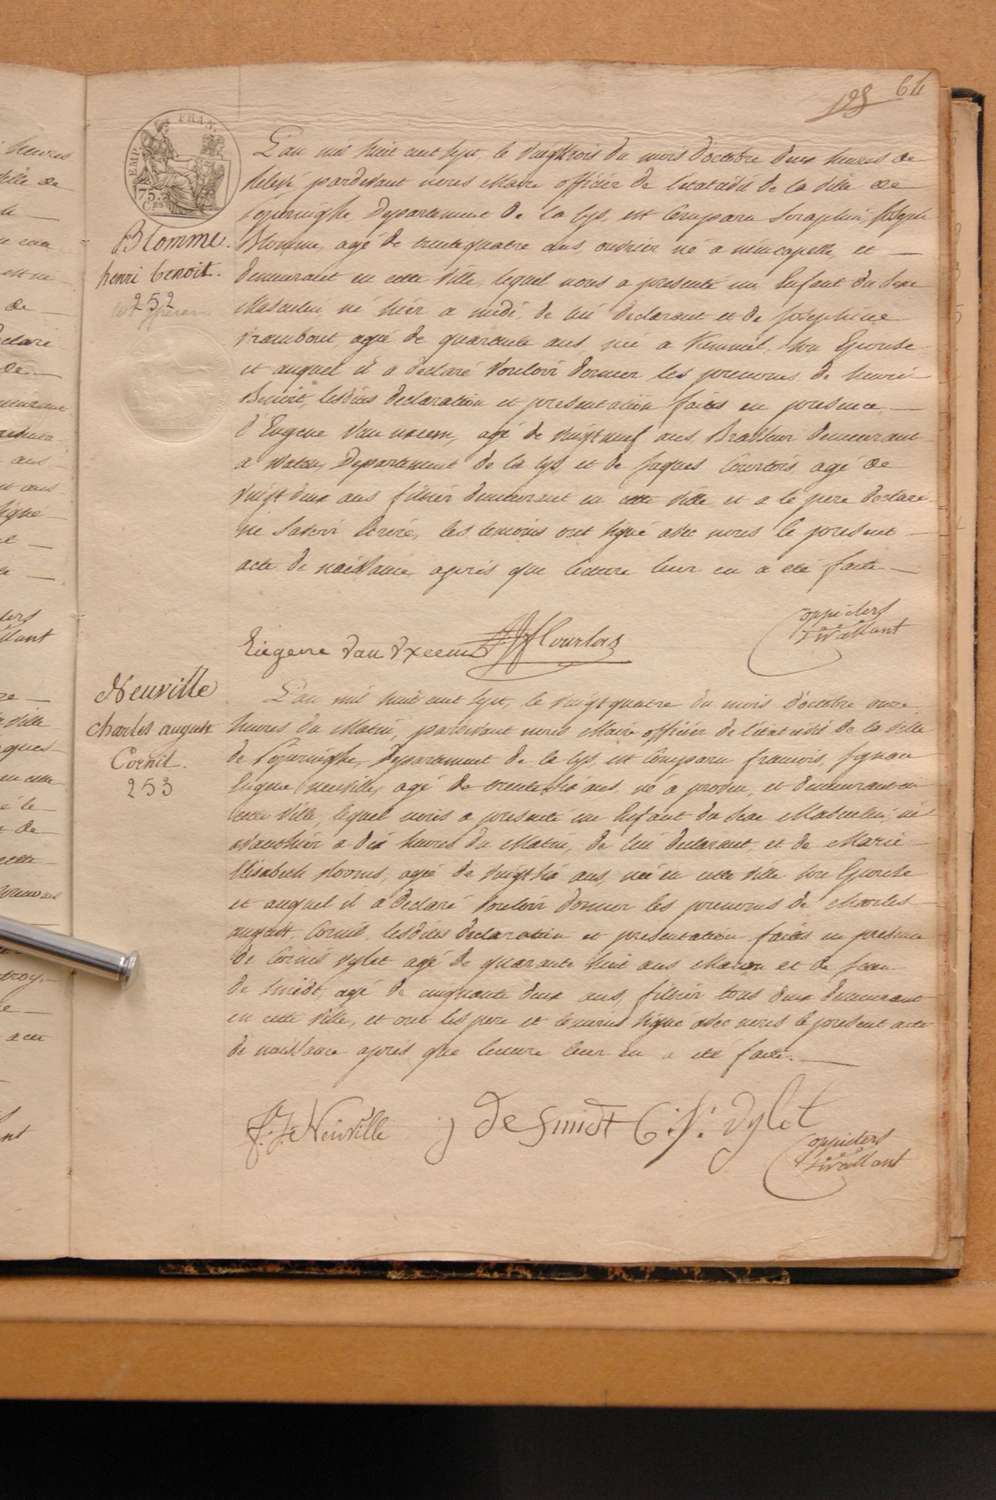 128 64
EMP. FRAN.
75
L'an mil huit cent sept, le vingttrois du mois d'octobre deux heures de
relevé pardevant nous Maire officier de l'etat civil de la ville de
Poperinghe Departement de la Lys, est Comparu Seraphin, Joseph
Blomme, agé de trente quatre ans, ouvrier né a et
Blomme.
henri benoit.
252
demeurant en cette Ville, lequel nous a presenté un Enfant du Sexe
Masculin né hier a midi, de lui declarant et de Josephine
agé de quarante ans, née a Kemmel. Son Epouse
et auquel il a declaré Vouloir donner les prenoms de henri
Benoit, lesdites declaration et presentation faites en presence
d'Eugene Van uxeem, agé de vingt neuf ans Brasseur demeurant
a Watou, Departement de la Lys et de Jaques Courtois agé de
vingt deux ans filtier demeurant en cette Ville et a le pere declaré
ne Savoir ecrire, les temoins ont Signé avec nous le present
acte de naissance, après que lecture leur en a eté faite
Eugene Van Uxeem Courtois
Neuville
Charles august
Cornil.
253
L'an mil huit cent sept, le vingt quatre du mois d'octobre onze
heures du Matin, pardevant nous Maire officier de l'etat civil de la Ville
de Poperinghe, Departement de la Lys, est Comparu francois, Ignace
Eugene Neuville, agé de trente six ans, né a et demeurant en
cette Ville, lequel nous a presenté un Enfant du Sexe Masculin, né
avanthier a dix heures du Matin, de lui declarant, et de Marie
Elisabeth agé de Vingt six ans, née en cette Ville Son Epouse
et auquel il a declaré Vouloir donner les prenoms de Charles
august Cornil, lesdites declaration et presentation faites en presence
de Cornil Vylet agé de quarante huit ans Macon et de Jean
de Smidt, agé de cinquante deux ans, filtier tous deux demeurant
en cette Ville, et ont les pere et temoins Signé avec nous le present acte
de naissance après que lecture leur en a eté faite.
F. J. E Neuville j de Smidt C: J: Vylet